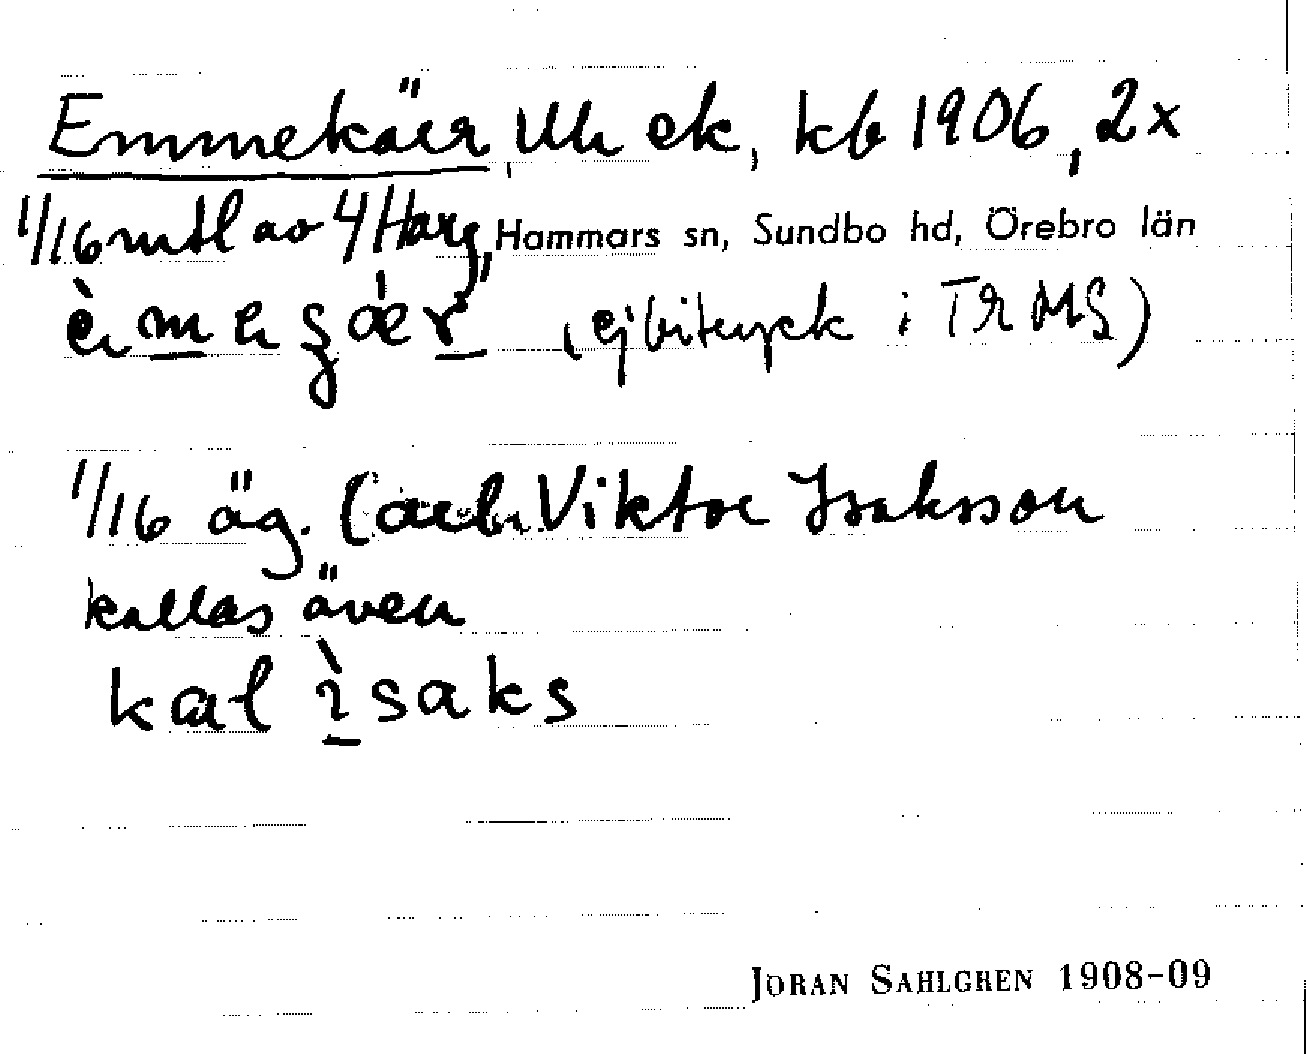 Emmekärr, Uh ek, kb 1906, 2x
1/16 mtl av 4 Harg, Hammars sn, Sundbo hd, Örebro län
èmegær (ej bitryck i TRMS)
1/16 äg. (arb. Viktor Isaksson
kallas även
kal ìsaks
JÖRAN SAHLGREN 1908-09